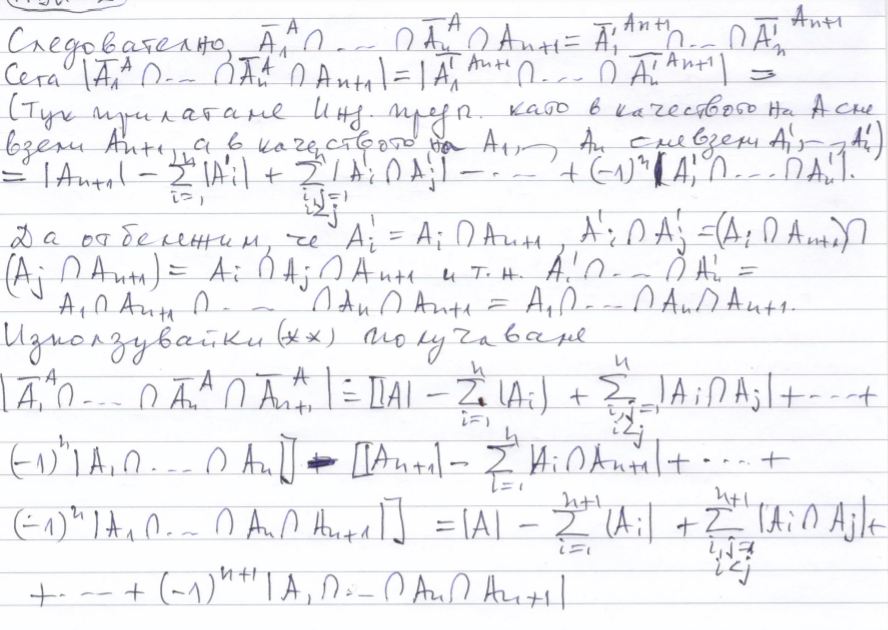 Следователно, Ā₁ᴬ ∩ ... ∩ Āₙᴬ ∩ Aₙ₊₁ = Ā₁'^{Aₙ₊₁} ∩ ... ∩ Āₙ'^{Aₙ₊₁}
Сега |Ā₁ᴬ ∩ ... ∩ Āₙᴬ ∩ Aₙ₊₁| = |Ā₁'^{Aₙ₊₁} ∩ ... ∩ Āₙ'^{Aₙ₊₁}| =
(Тук прилагаме Инд. предп. като в качеството на A сме
взели Aₙ₊₁, а в качеството на A₁, ..., Aₙ сме взели A₁', ..., Aₙ')
= |Aₙ₊₁| - ∑_{i=1}^{n} |A'ᵢ| + ∑_{i,j=1, i<j}^{n} |A'ᵢ ∩ A'ⱼ| - ... + (-1)ⁿ |A₁' ∩ ... ∩ Aₙ'|.
Да отбележим, че Aᵢ' = Aᵢ ∩ Aₙ₊₁, A'ᵢ ∩ A'ⱼ = (Aᵢ ∩ Aₙ₊₁) ∩
(Aⱼ ∩ Aₙ₊₁) = Aᵢ ∩ Aⱼ ∩ Aₙ₊₁ и т.н. A₁' ∩ ... ∩ Aₙ' =
A₁ ∩ Aₙ₊₁ ∩ ... ∩ Aₙ ∩ Aₙ₊₁ = A₁ ∩ ... ∩ Aₙ ∩ Aₙ₊₁.
Използвайки (**) получаваме
|Ā₁ᴬ ∩ ... ∩ Āₙᴬ ∩ Āₙ₊₁ᴬ| = [|A| - ∑_{i=1}^{n} |Aᵢ| + ∑_{i,j=1, i<j}^{n} |Aᵢ ∩ Aⱼ| + ... +
(-1)ⁿ |A₁ ∩ ... ∩ Aₙ|] - [|Aₙ₊₁| - ∑_{i=1}^{n} |Aᵢ ∩ Aₙ₊₁| + ... +
(-1)ⁿ |A₁ ∩ ... ∩ Aₙ ∩ Aₙ₊₁|] = |A| - ∑_{i=1}^{n+1} |Aᵢ| + ∑_{i,j=1, i<j}^{n+1} |Aᵢ ∩ Aⱼ| +
+ ... + (-1)ⁿ⁺¹ |A₁ ∩ ... ∩ Aₙ ∩ Aₙ₊₁|